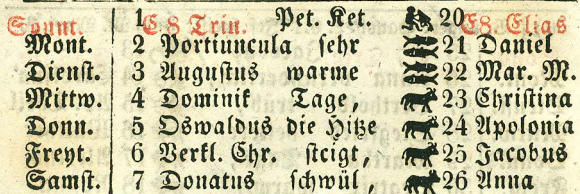 Sonnt. 1 E8 Trin. Pet. Ket. 20 E8. Elias
Mont. 2 Portiuncula sehr 21 Daniel
Dienst. 3 Augustus warme 22 Mar. M.
Mittw. 4 Dominik Tage, 23 Christina
Donn. 5 Oswaldus die Hitze 24 Apolonia
Freyt. 6 Verkl. Chr. steigt, 25 Jacobus
Samst. 7 Donatus schwül, 26 Anna